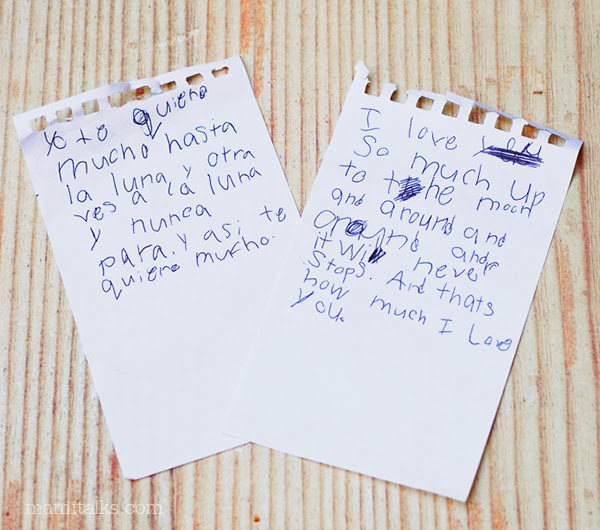 Yo te quiero
mucho hasta
la luna y otra
ves a la luna
y nunca
para. y asi te
quiero mucho.
I love
So much up
to the moon
and around and
around and
it will never
stops. And thats
how much I Love
you.
mamitalks.com